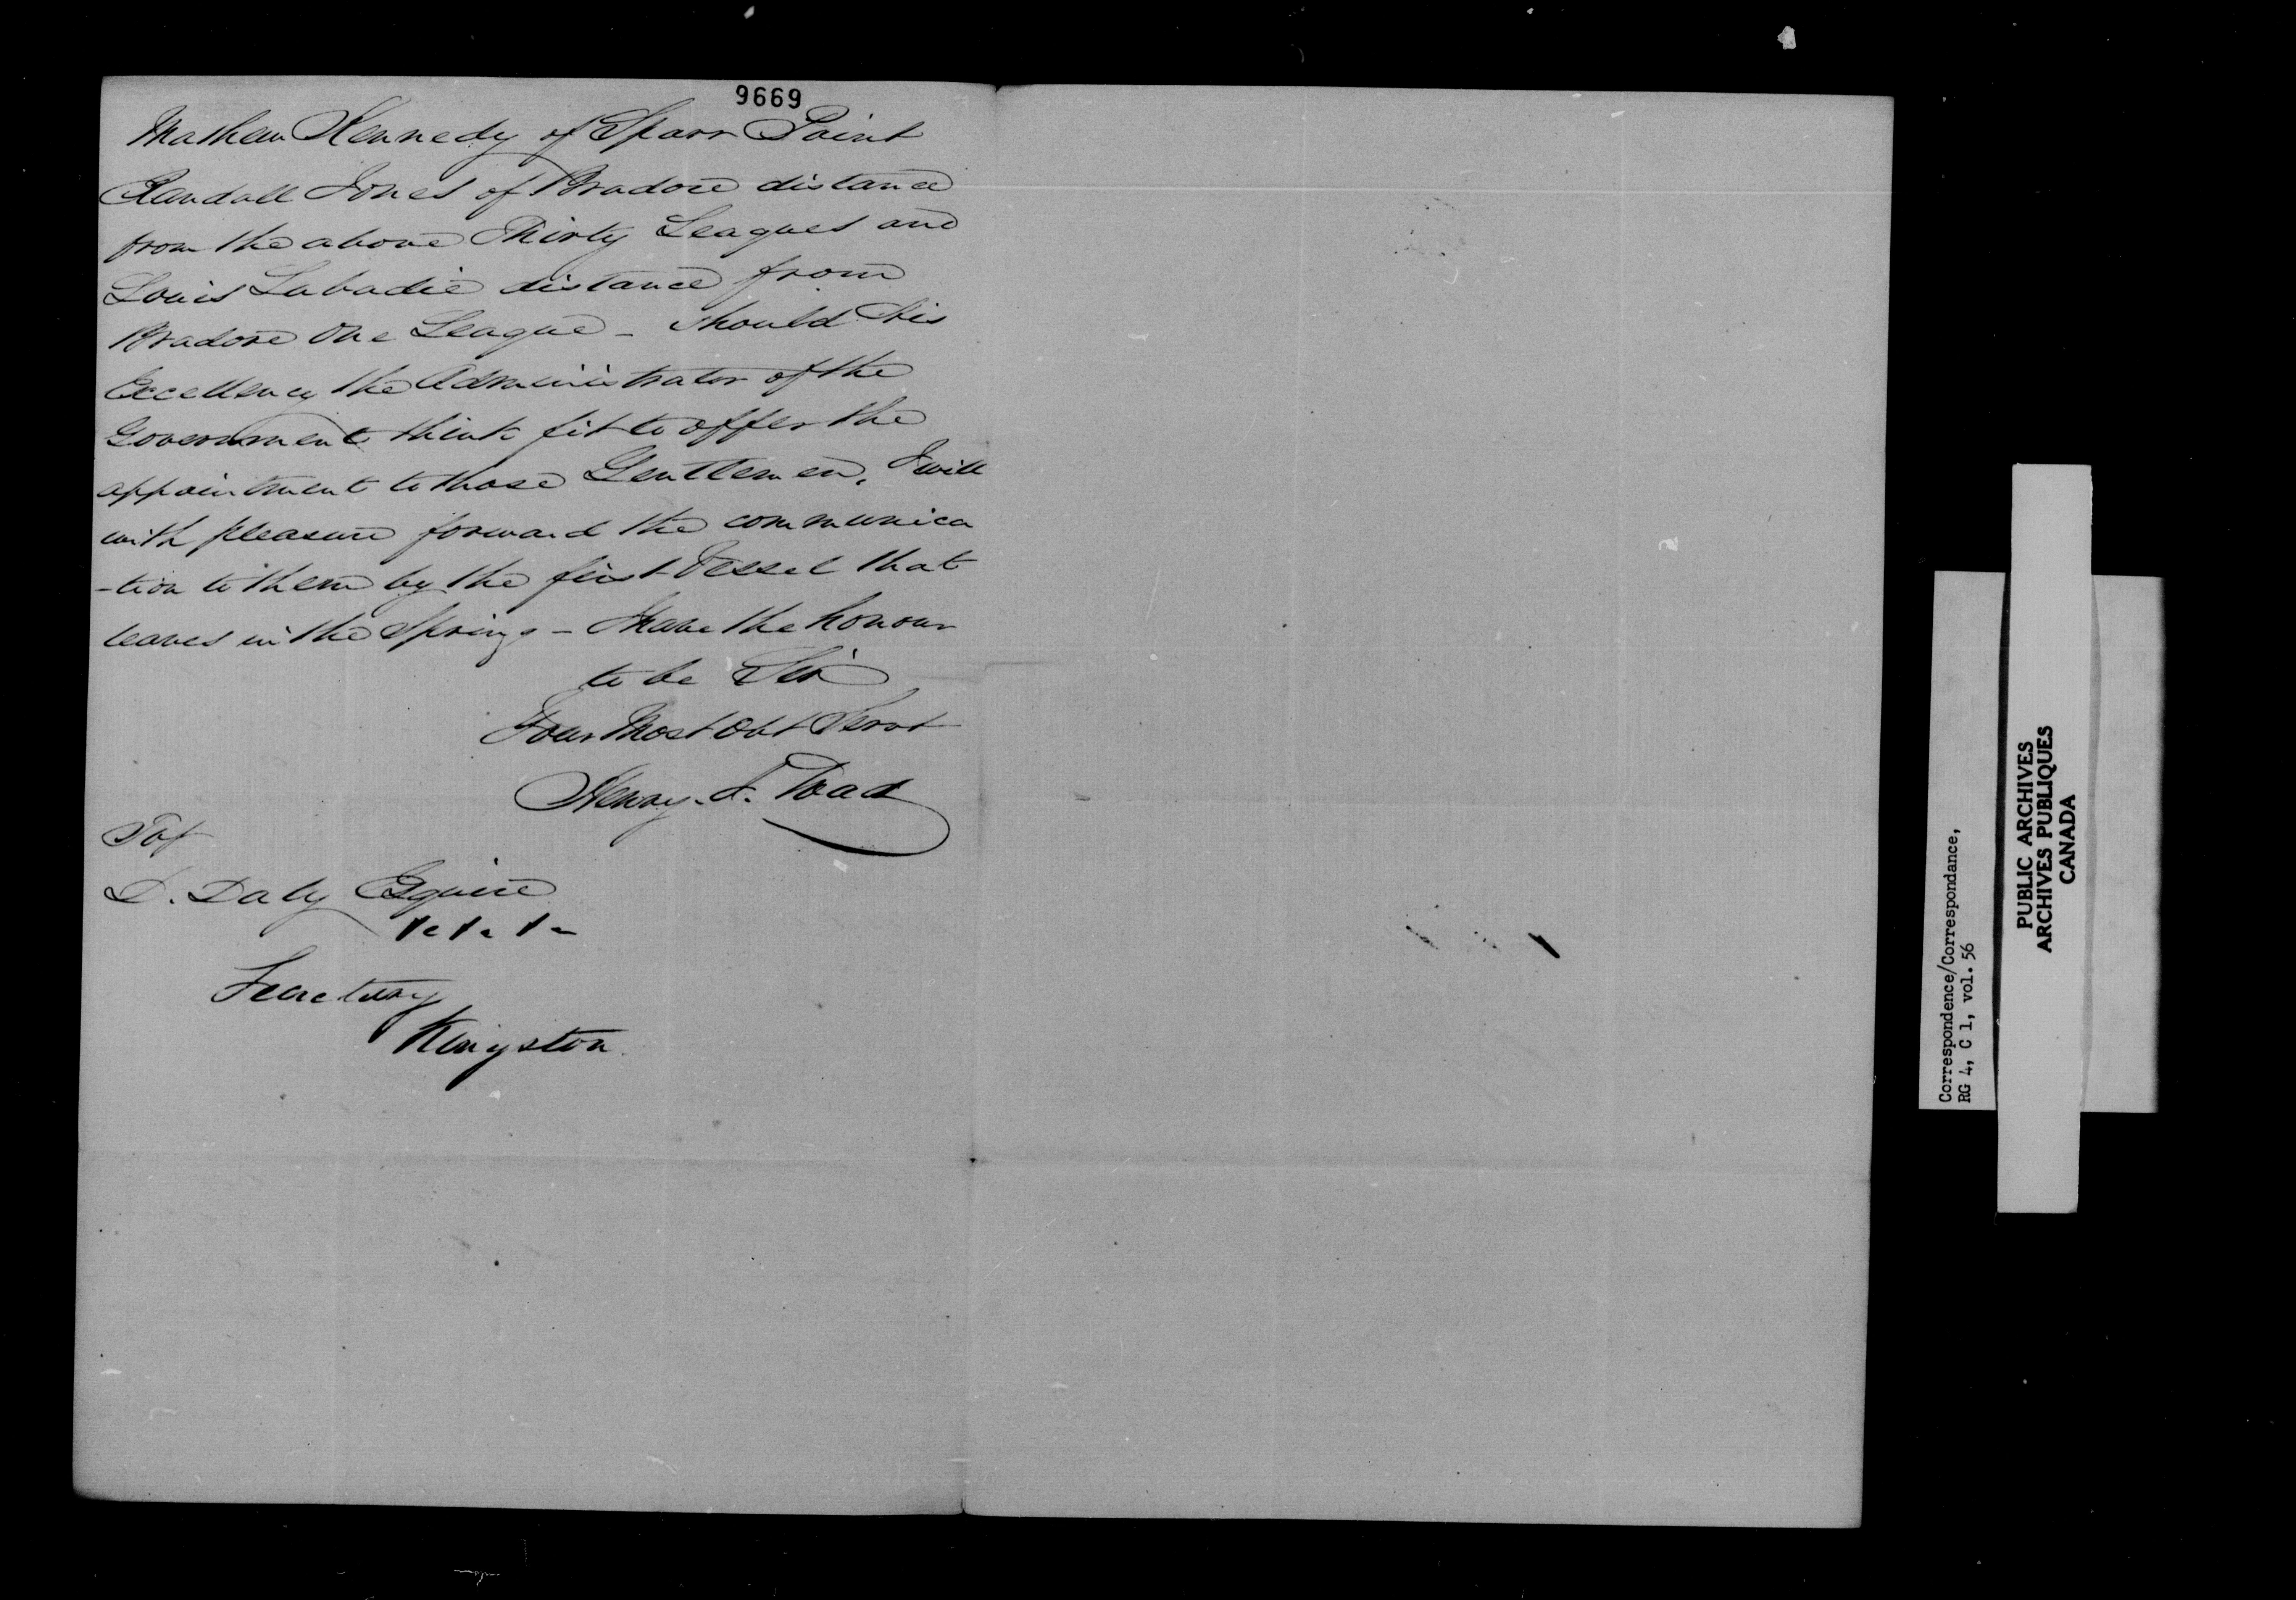 9669
Mathew Kennedy of Sparr Point
Randall Jones of Bradore distance
from the above Thirty Leagues and
Louis Labadie distance from
Bradore One League - should His
Excellency the Administrator of the
Government think fit to offer the
appointment to those Gentlemen, I will
with pleasure forward the communica
-tion to them by the first Vessel that
leaves in the Spring - I have the honour
to be Sir
Your Most Obt Servt
Henry. J.
To
D. Daly Esquire
Secretary
Kingston.
Correspondence/Correspondance,
RG 4, C 1, vol. 56
PUBLIC ARCHIVES
ARCHIVES PUBLIQUES
CANADA